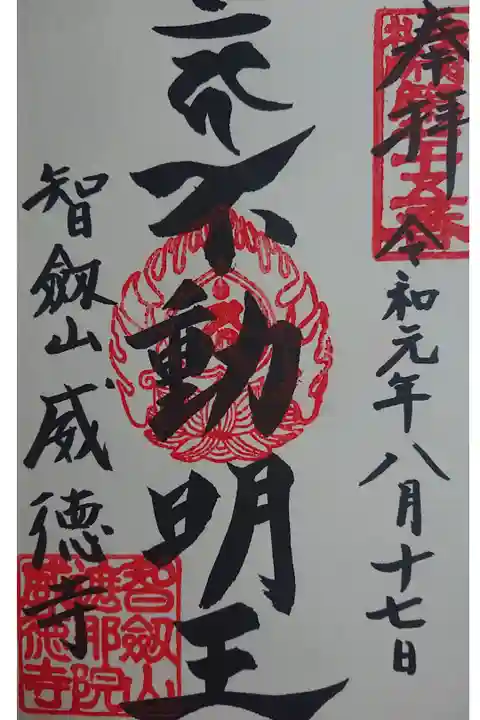 奉拝
令和元年八月十七日
不動明王
智劔山威徳寺
智劔山
遮那院
威徳寺